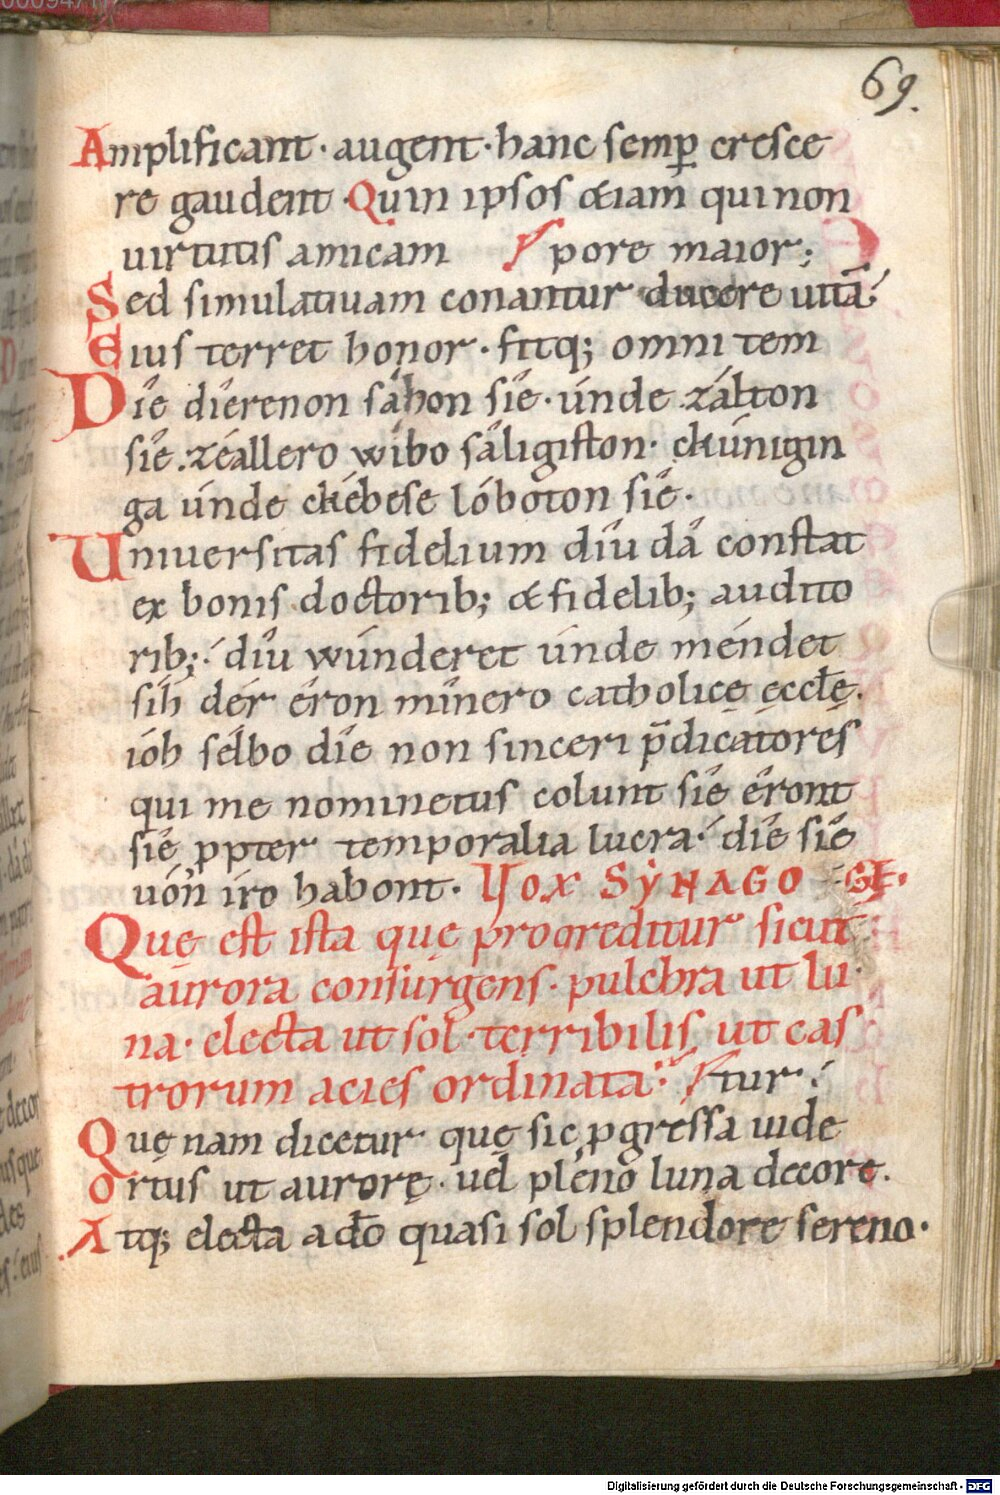 69.
Amplificant · augent · hanc semꝑ cresce
re gaudent · Quin ipsos &iam qui non
uirtutis amicam pore maior;
Sed simulatiuam conantur ducere uitā
Eius terret honor · fitq; omni tem
Die dîerenon sâhon sîe · únde zálton
sîe. zeállero wîbo sâligiston · chúnigin
ga únde chébese lóboton sîe ·
Uniuersitas fidelium dîu dâ constat
ex bonis doctorib; & fidelib; audito
rib; dîu wúnderet únde méndet
síh dér êron mînero catholicę ecclę.
ióh sélbo dîe non sinceri p̄dicatores
qui me nominetus colunt sîe êront
sîe ꝓpter temporalia lucra · dîe sîe
uón iro habont · Vox SYNAGO GE.
Quę est ista quę progreditur sicut
aurora consurgens · pulchra ut lu
na · electa ut sol · terribilis ut cas
trorum acies ordinata tur ·
Quę nam dicetur quę sic ꝓgressa uide
Ortus ut aurorę · uel pleno luna decore.
Atq; electa a do quasi sol splendore sereno ·
Digitalisierung gefördert durch die Deutsche Forschungsgemeinschaft - DFG